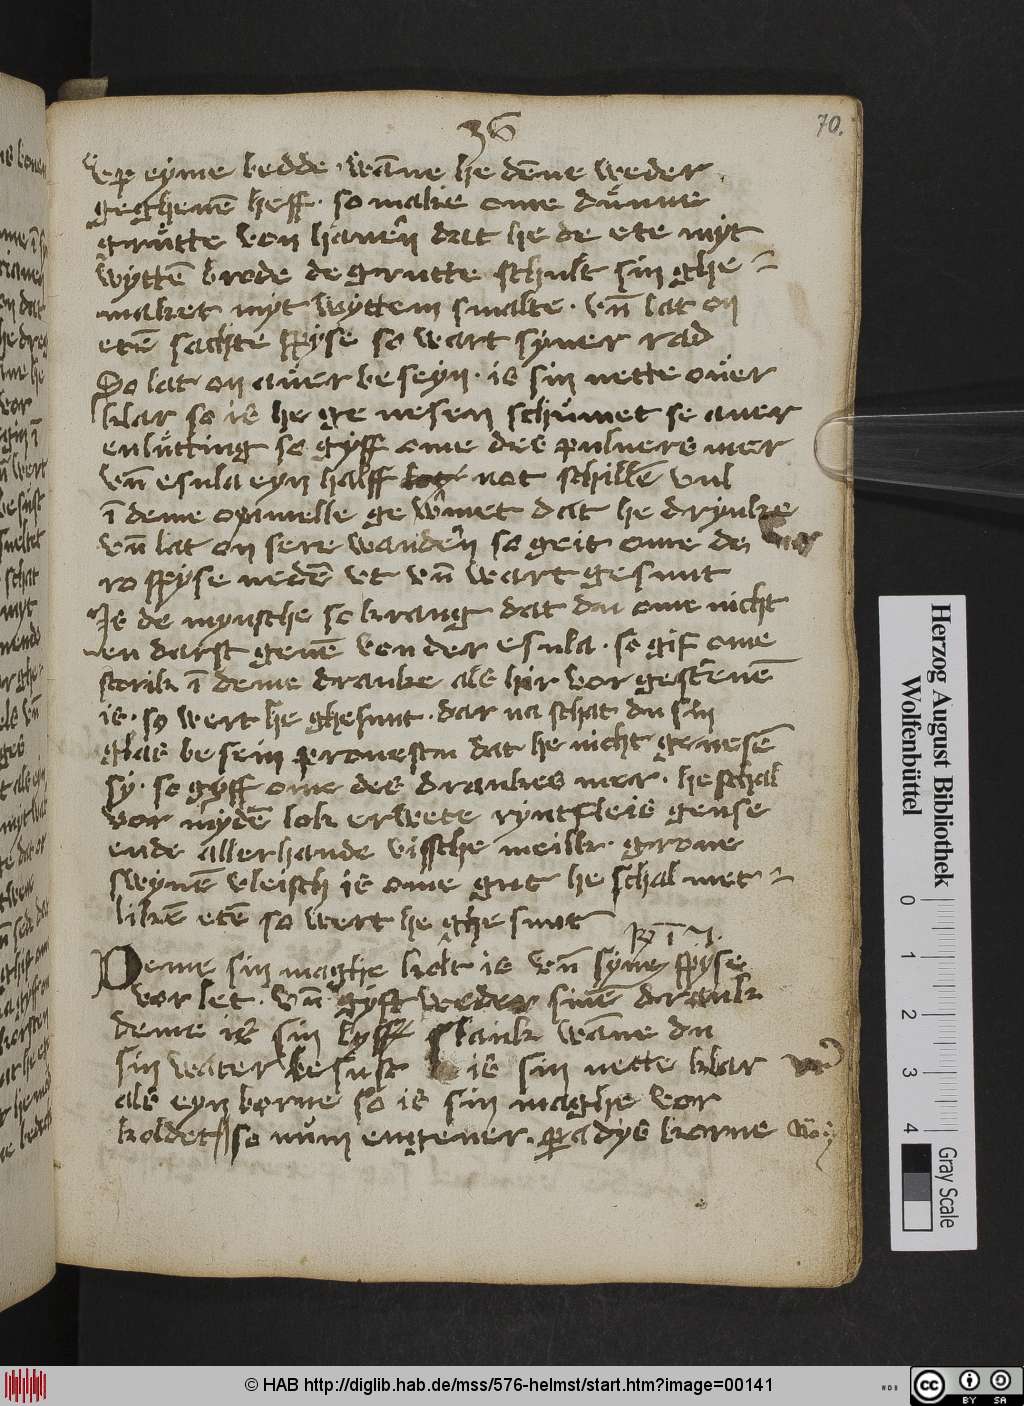 36
70.
vp eyme bedde · wāne he dēne weder
geghenē heff · so make ome dünne
grütte von hauern dat he de ete myt
wyttē brode de grutte schult sin ghe =
maket myt wyttem smalte · vn̄ lat on
etē sachte spyse so wart syner rad
So lat on auer beseyn · is sin nette ouer
klar so is he ge nesen schümet se auer
enlütting so gyff ome des puluers mer
vn̄ esula eyn halff not schillē vul
ī deme opimelle ge wmet dat he drynke
vn̄ lat on sere wandern so geit ome de
ro spyse nedē vt vn̄ wart gesunt
Is de mynsche so krang dat du ome nicht
en darst geuē von der esula · so gif ome
storik ī deme dranke als hir vor gescreuē
is · so wert he ghesunt · dar na schat du sin
glas besein prouestu dat he nicht genesē
sy · so gyff ome des drankes mer · he schal
vor mydē lok erwete ryntfleis gense
ende allerhande vissche meilk · grone
swynē vleisch is ome gut he schal met =
likē etē so wert he ghe sunt
Deme sin maghe kolt is vn̄ syne spyse
vor let · vn̄ gyft weder sinē drank
deme is sin lyff slank wāne du
sin water besust is sin nette klar
als eyn borne so is sin maghe vor
koldet so num engeuer · paradys korne
Herzog August Bibliothek
Wolfenbüttel
0 1 2 3 4
Gray Scale
© HAB http://diglib.hab.de/mss/576-helmst/start.htm?image=00141
WDB
cc BY SA